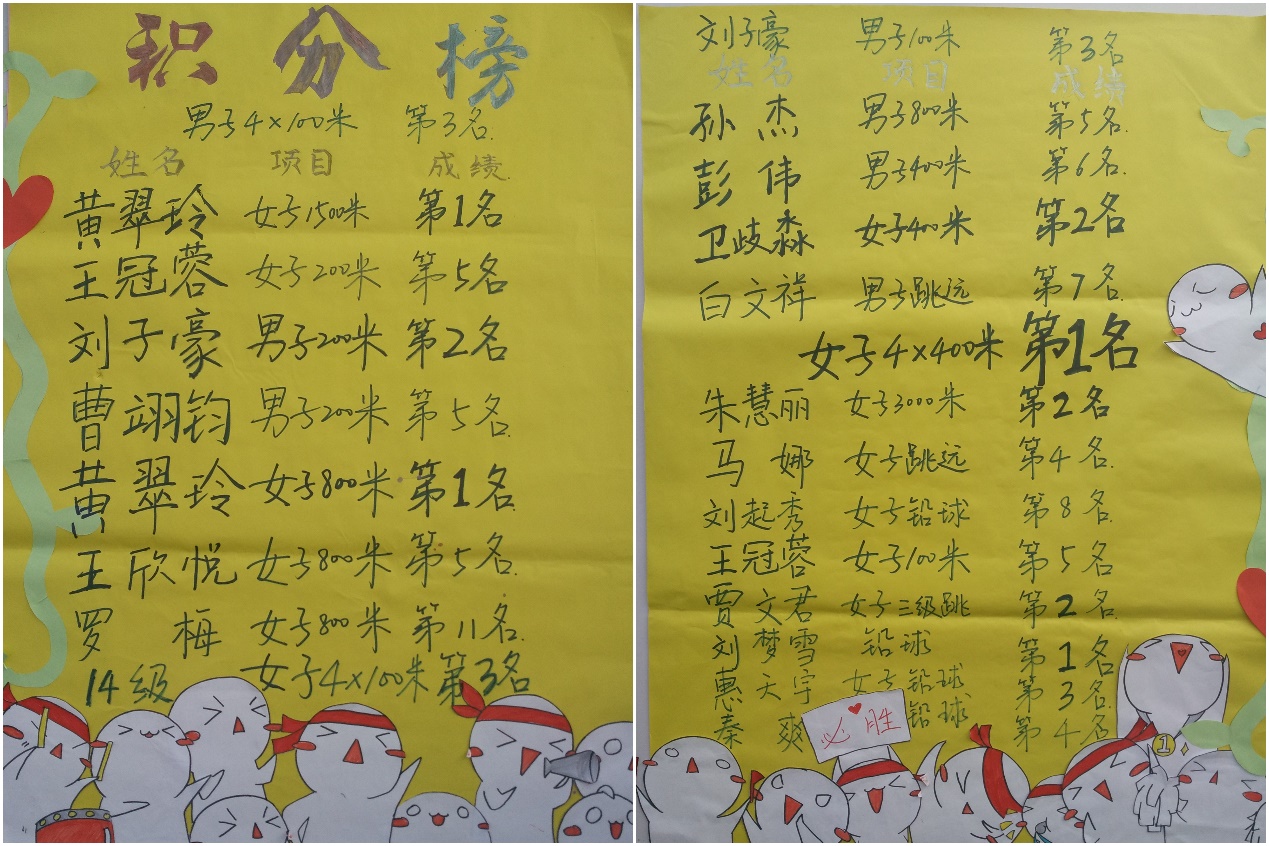 积分榜
男子4×100米 第3名
姓名 项目 成绩
黄翠玲 女子1500米 第1名
王冠蓉 女子200米 第5名
刘子豪 男子200米 第2名
曹翊钧 男子200米 第5名
黄翠玲 女子800米 第1名
王欣悦 女子800米 第5名
罗梅 女子800米 第11名
14级 女子4×100米 第3名
刘子豪 男子100米 第3名
姓名 项目 成绩
孙杰 男子800米 第5名
彭伟 男子400米 第6名
卫歧淼 女子400米 第2名
白文祥 男子跳远 第7名
女子4×400米 第1名
朱慧丽 女子3000米 第2名
马娜 女子跳远 第4名
刘起秀 女子铅球 第8名
王冠蓉 女子100米 第5名
贾文君 女子三级跳 第2名
刘梦雪 铅球 第1名
惠天宇 女子铅球 第3名
秦爽 铅球 第4名
必胜
1